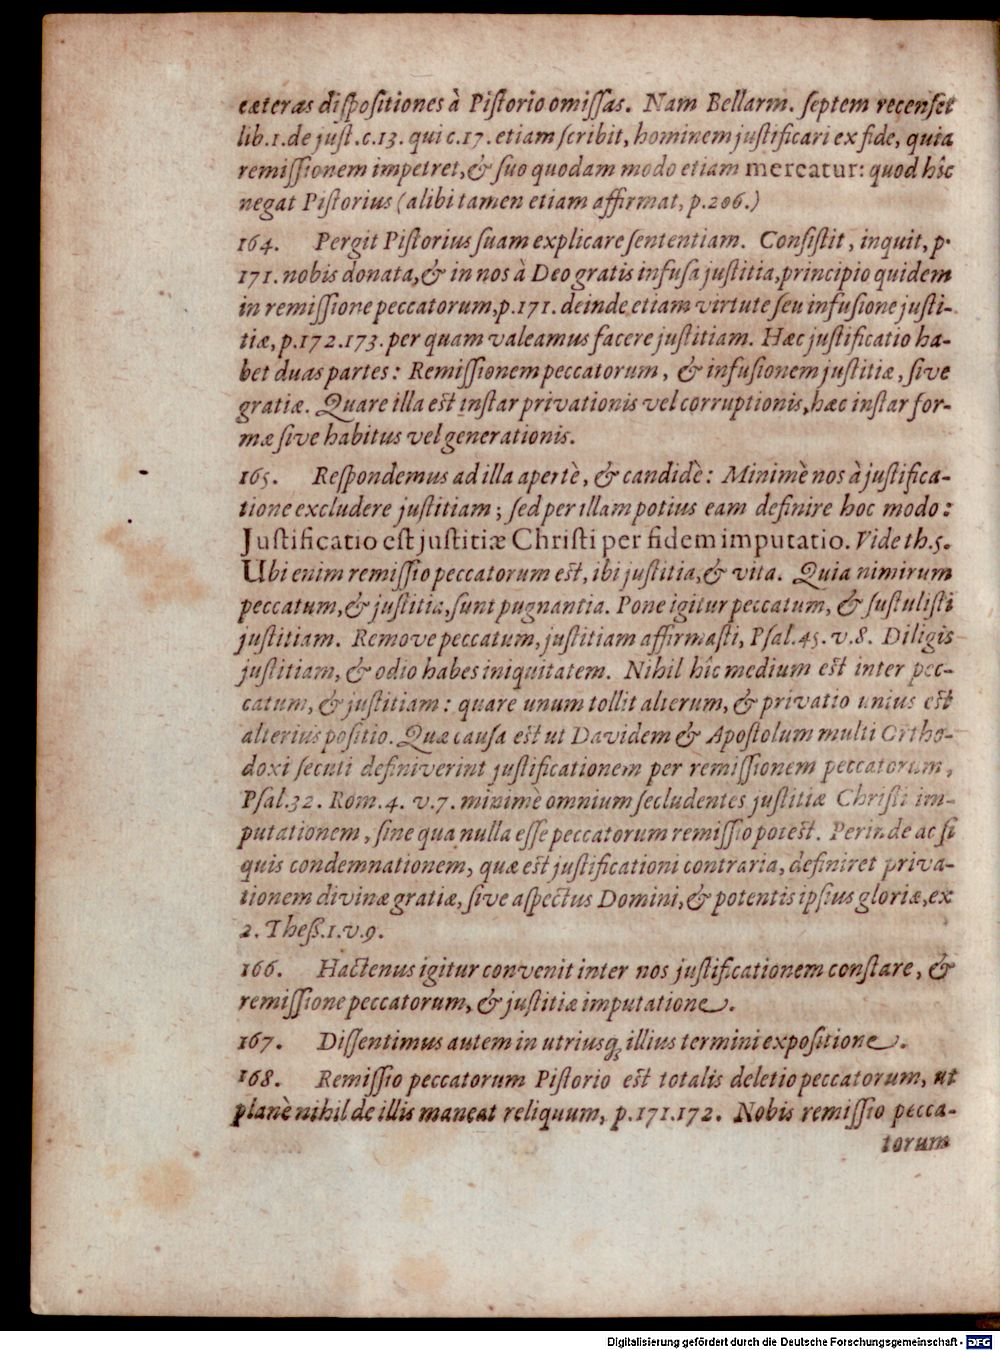 cæteras dispositiones à Pistorio omissas. Nam Bellarm. septem recenset
lib.1. de just. c.13. qui c.17. etiam scribit, hominem justificari ex fide, quia
remissionem impetret, & suo quodam modo etiam mereatur: quod hîc
negat Pistorius (alibi tamen etiam affirmat, p.206.)
164. Pergit Pistorius suam explicare sententiam. Consistit, inquit, p.
171. nobis donata, & in nos à Deo gratis infusa justitia, principio quidem
in remissione peccatorum, p.171. deinde etiam virtute seu infusione justi-
tiæ, p.172.173. per quam valeamus facere justitiam. Hæc justificatio ha-
bet duas partes: Remissionem peccatorum, & infusionem justitiæ, sive
gratiæ. Quare illa est instar privationis vel corruptionis, hæc instar for-
mæ sive habitus vel generationis.
165. Respondemus ad illa apertè, & candidè: Minimè nos à justifica-
tione excludere justitiam; sed per illam potius eam definire hoc modo:
Justificatio est justitiæ Christi per fidem imputatio. Vide th.5.
Ubi enim remissio peccatorum est, ibi justitia, & vita. Quia nimirum
peccatum, & justitia, sunt pugnantia. Pone igitur peccatum, & sustulisti
justitiam. Remove peccatum, justitiam affirmasti, Psal.45. v.8. Diligis
justitiam, & odio habes iniquitatem. Nihil hîc medium est inter pec-
catum, & justitiam: quare unum tollit alterum, & privatio unius est
alterius positio. Quæ causa est ut Davidem & Apostolum multi Ortho-
doxi secuti definiverint justificationem per remissionem peccatorum,
Psal.32. Rom.4. v.7. minimè omnium secludentes justitiæ Christi im-
putationem, sine qua nulla esse peccatorum remissio potest. Perinde ac si
quis condemnationem, quæ est justificationi contraria, definiret priva-
tionem divinæ gratiæ, sive aspectus Domini, & potentis ipsius gloriæ, ex
2. Thess.1.v.9.
166. Hactenus igitur convenit inter nos justificationem constare, &
remissione peccatorum, & justitiæ imputatione.
167. Dissentimus autem in utriusq; illius termini expositione.
168. Remissio peccatorum Pistorio est totalis deletio peccatorum, ut
planè nihil de illis maneat reliquum, p.171.172. Nobis remissio pecca-
torum
Digitalisierung gefördert durch die Deutsche Forschungsgemeinschaft - DFG